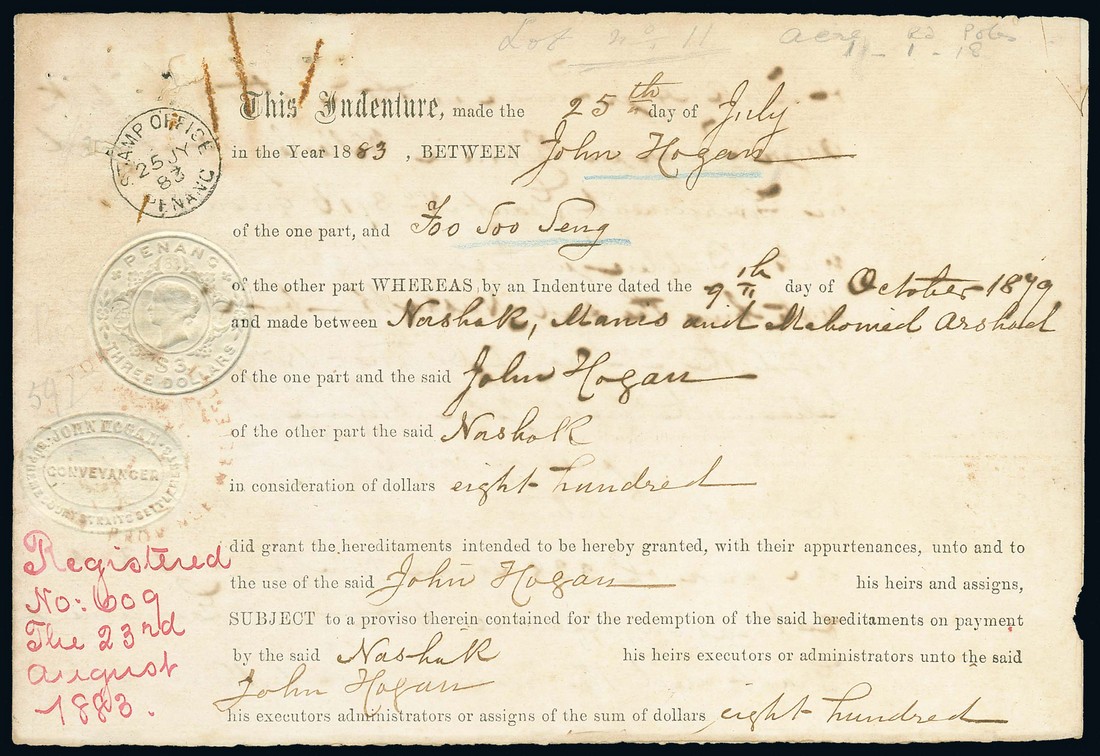 Lot No. 11
acre Rd Poles
1 - 1 - 18
This Indenture, made the 25th day of July
in the Year 1883, BETWEEN John Hogan
of the one part, and Foo Soo Seng
of the other part WHEREAS by an Indenture dated the 9th day of October 1879
and made between Nashak, Manis and Mahomed Arshad
of the one part and the said John Hogan
of the other part the said Nashak
in consideration of dollars eight hundred
did grant the hereditaments intended to be hereby granted, with their appurtenances, unto and to
the use of the said John Hogan his heirs and assigns,
SUBJECT to a proviso therein contained for the redemption of the said hereditaments on payment
by the said Nashak his heirs executors or administrators unto the said
John Hogan
his executors administrators or assigns of the sum of dollars eight hundred
STAMP OFFICE
25 JY
83
PENANG
PENANG
THREE DOLLARS
JOHN HOGAN
CONVEYANCER
SUPREME COURT STRAITS SETTLEMENTS
Registered
No: 609
The 23rd
August
1883.